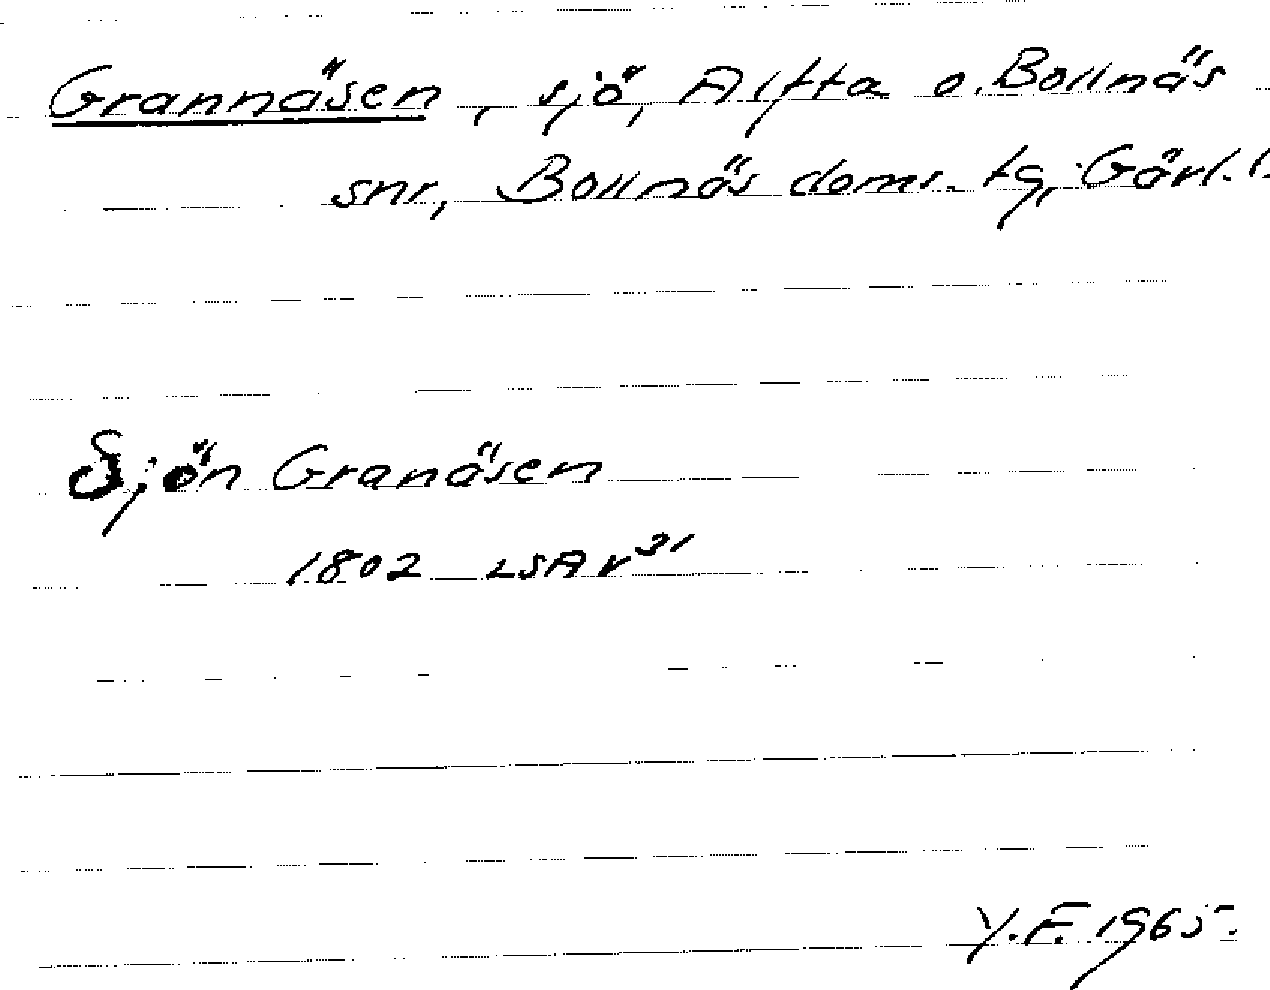 Grannäsen, sjö, Alfta o. Bollnäs
snr, Bollnäs doms. tg, Gävl. l.
Sjön Granäsen
1802 LSA V31
Y.F. 1965.